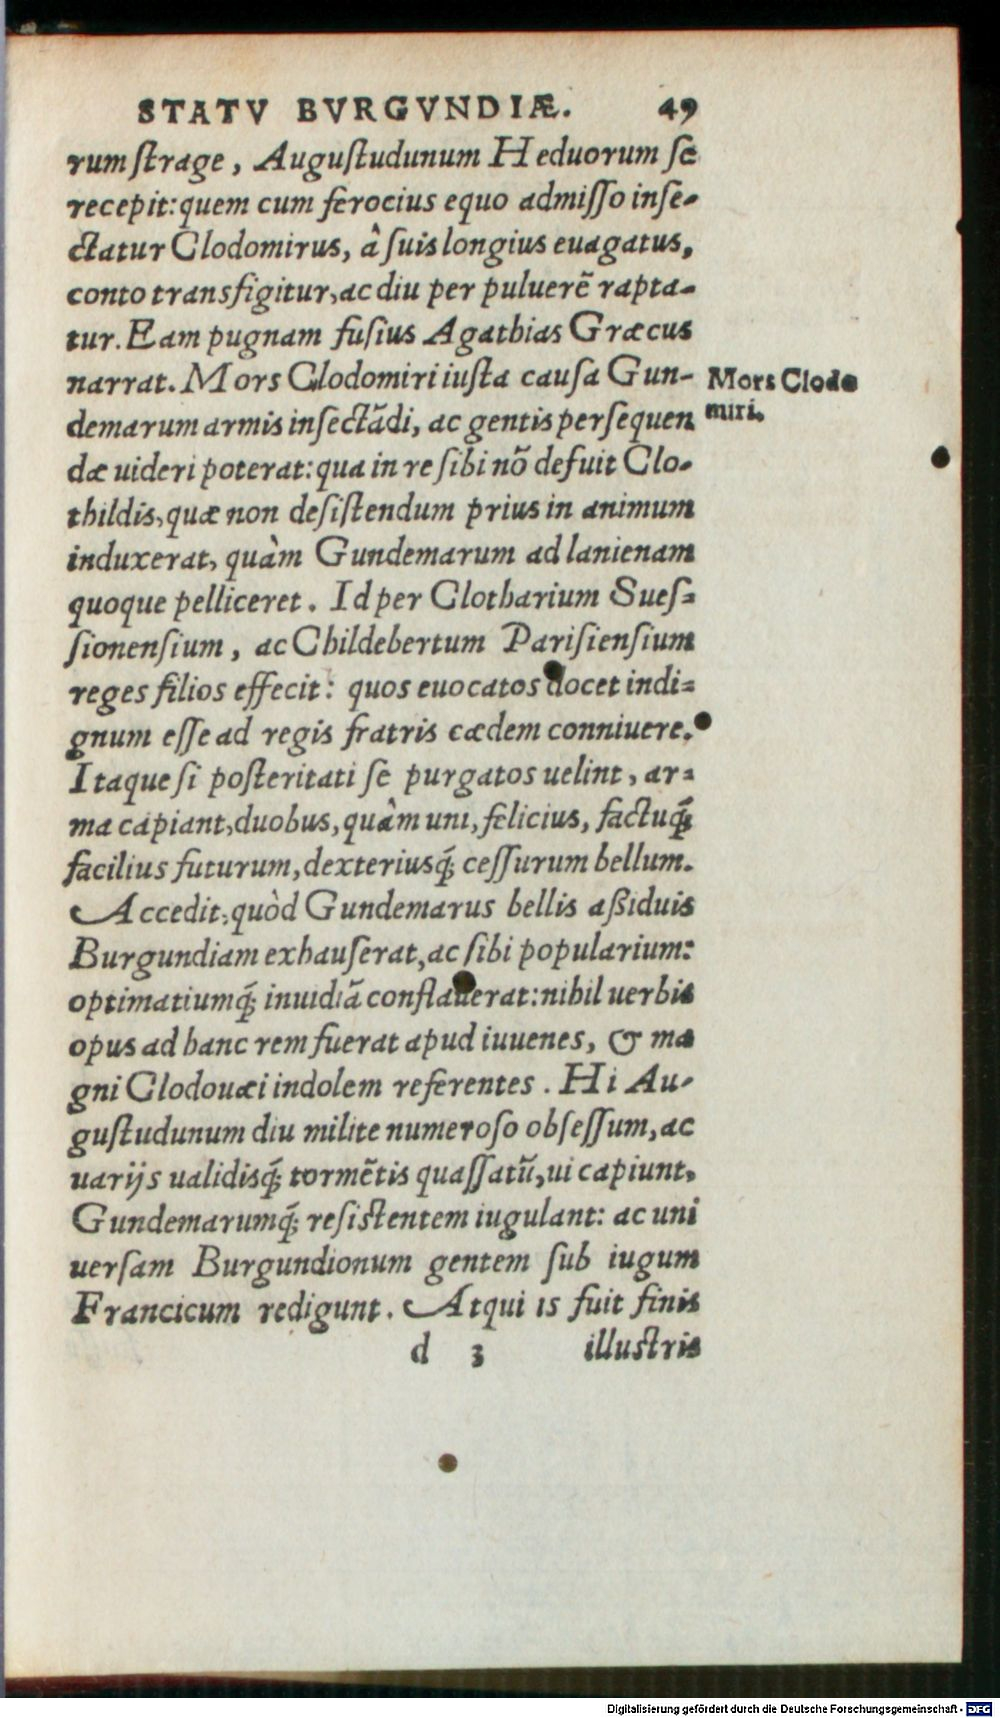 STATV BVRGVNDIÆ. 49
rum ſtrage, Auguſtudunum Heduorum ſe
recepit: quem cum ferocius equo admiſſo inſe-
ctatur Clodomirus, â ſuis longius euagatus,
conto transfigitur, ac diu per puluerẽ rapta-
tur. Eam pugnam fuſius Agathias Græcus
narrat. Mors Clodomiri iuſta cauſa Gun-
Mors Clodo
miri.
demarum armis inſectãdi, ac gentis perſequen
dæ uideri poterat: qua in re ſibi nõ defuit Clo-
thildis, quæ non deſiſtendum prius in animum
induxerat, quàm Gundemarum ad lanienam
quoque pelliceret. Id per Clotharium Sueſ-
ſionenſium, ac Childebertum Pariſienſium
reges filios effecit: quos euocatos docet indi-
gnum eſſe ad regis fratris cædem conniuere.
Itaque ſi poſteritati ſe purgatos uelint, ar-
ma capiant, duobus, quàm uni, felicius, factuq́;
facilius futurum, dexteriusq́; ceſſurum bellum.
Accedit, quòd Gundemarus bellis aßiduis
Burgundiam exhauſerat, ac ſibi popularium:
optimatiumq́; inuidiã conflauerat: nihil uerbis
opus ad hanc rem fuerat apud iuuenes, & ma
gni Clodouæi indolem referentes. Hi Au-
guſtudunum diu milite numeroſo obſeſſum, ac
uarijs ualidisq́; tormẽtis quaſſatũ, ui capiunt,
Gundemarumq́; reſiſtentem iugulant: ac uni
uerſam Burgundionum gentem ſub iugum
Francicum redigunt. Atqui is fuit finis
d 3 illuſtris
Digitalisierung gefördert durch die Deutsche Forschungsgemeinschaft - DFG